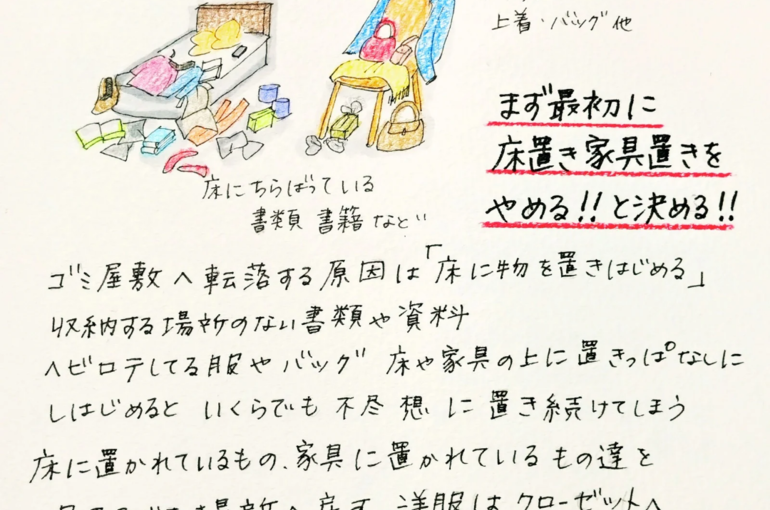 上着・バッグ 他
まず最初に
床置き家具置きを
やめる!!と決める!!
床にちらばっている
書類 書籍など
ゴミ屋敷へ転落する原因は「床に物を置きはじめる」
収納する場所のない書類や資料
ヘビロテしてる服やバッグ 床や家具の上に置きっぱなしに
しはじめると いくらでも 不尽 想 に 置き続けてしまう
床に置かれているもの、家具に置かれているもの達を
場所へ戻す 洋服はクローゼットへ